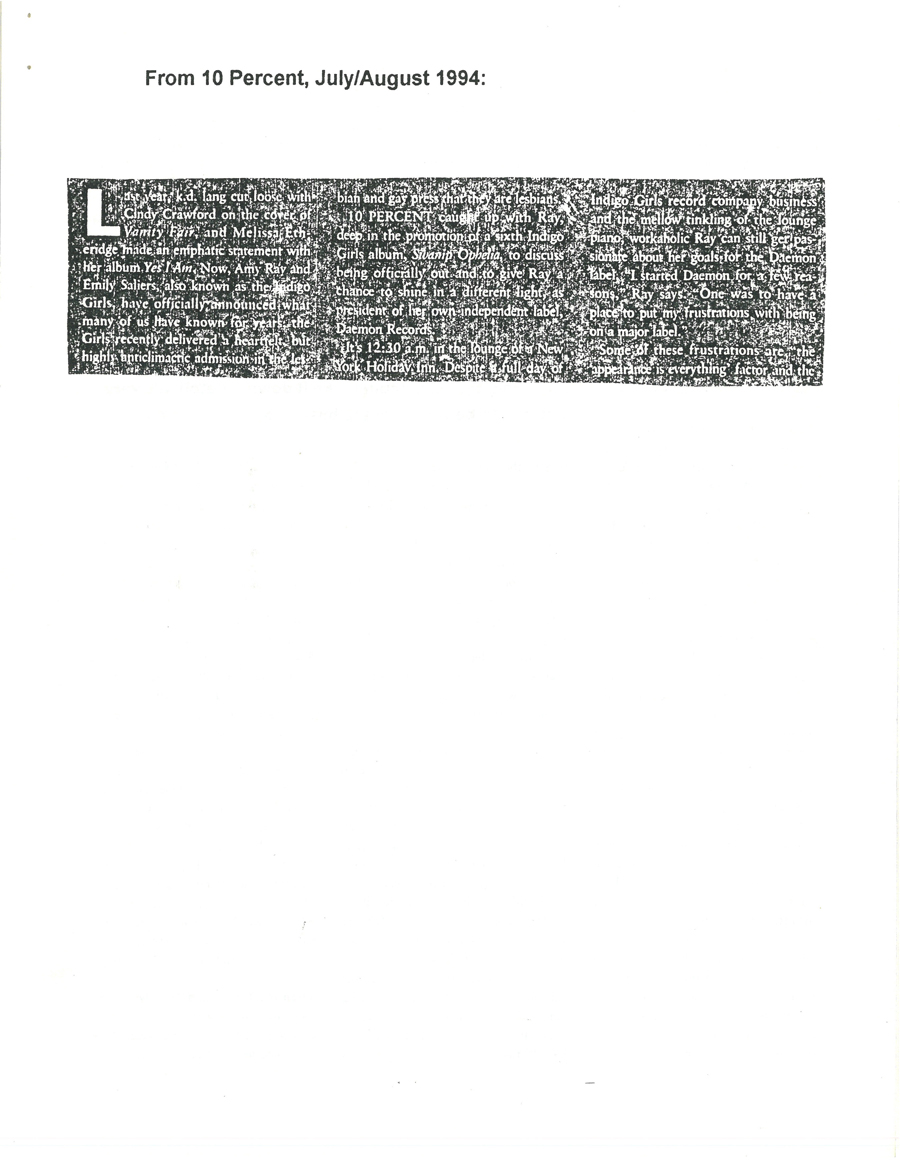 From 10 Percent, July/August 1994:
Last year, k.d. lang cut loose with
Cindy Crawford on the cover of
Vanity Fair, and Melissa Eth-
eridge made an emphatic statement with
her album Yes I Am. Now, Amy Ray and
Emily Saliers, also known as the Indigo
Girls, have officially announced what
many of us have known for years: the
Girls recently delivered a heartfelt, but
highly anticlimactic admission in the les-
bian and gay press that they are lesbians.
10 PERCENT caught up with Ray,
deep in the promotion of a sixth Indigo
Girls album, Swamp Ophelia, to discuss
being officially out and to give Ray a
chance to shine in a different light, as
president of her own independent label,
Daemon Records.
It's 12:30 a.m. in the lounge of a New
York Holiday Inn. Despite a full day of
Indigo Girls record company business
and the mellow tinkling of the lounge
piano, workaholic Ray can still get pas-
sionate about her goals for the Daemon
label. "I started Daemon for a few rea-
sons," Ray says. "One was to have a
place to put my frustrations with being
on a major label."
Some of these frustrations are "the
'appearance is everything' factor and the